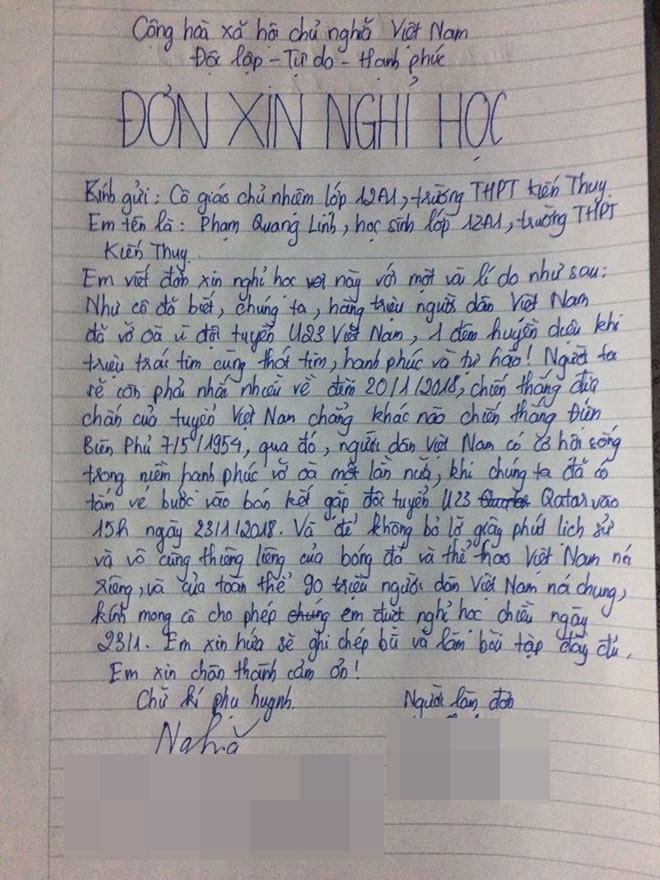 Cộng hòa xã hội chủ nghĩa Việt Nam
Độc lập - Tự do - Hạnh phúc
ĐƠN XIN NGHỈ HỌC
Kính gửi: Cô giáo chủ nhiệm lớp 12A1, trường THPT Kiến Thụy.
Em tên là: Phạm Quang Linh, học sinh lớp 12A1, trường THPT
Kiến Thụy.
Em viết đơn xin nghỉ học này với một vài lí do như sau:
Như cô đã biết, chúng ta, hàng triệu người dân Việt Nam
đã vỡ oà vì đội tuyển U23 Việt Nam, 1 đêm huyền diệu khi
triệu trái tim cùng thót tim, hạnh phúc và tự hào! Người ta
sẽ còn phải nhắc nhiều về đêm 20/1/2018, chiến thắng địa
chấn của tuyển Việt Nam chẳng khác nào chiến thắng Điện
Biên Phủ 7/5/1954, qua đó, người dân Việt Nam có cơ hội sống
trong niềm hạnh phúc vỡ oà một lần nữa, khi chúng ta đã có
tấm vé bước vào bán kết gặp đội tuyển U23 Qatar vào
15h ngày 23/1/2018. Và để không bỏ lỡ giây phút lịch sử
và vô cùng thiêng liêng của bóng đá và thể thao Việt Nam nói
riêng, và của toàn thể 90 triệu người dân Việt Nam nói chung,
kính mong cô cho phép chúng em được nghỉ học chiều ngày
23/1. Em xin hứa sẽ ghi chép bù và làm bài tập đầy đủ.
Em xin chân thành cảm ơn!
Chữ kí phụ huynh. Người làm đơn
Nghĩa